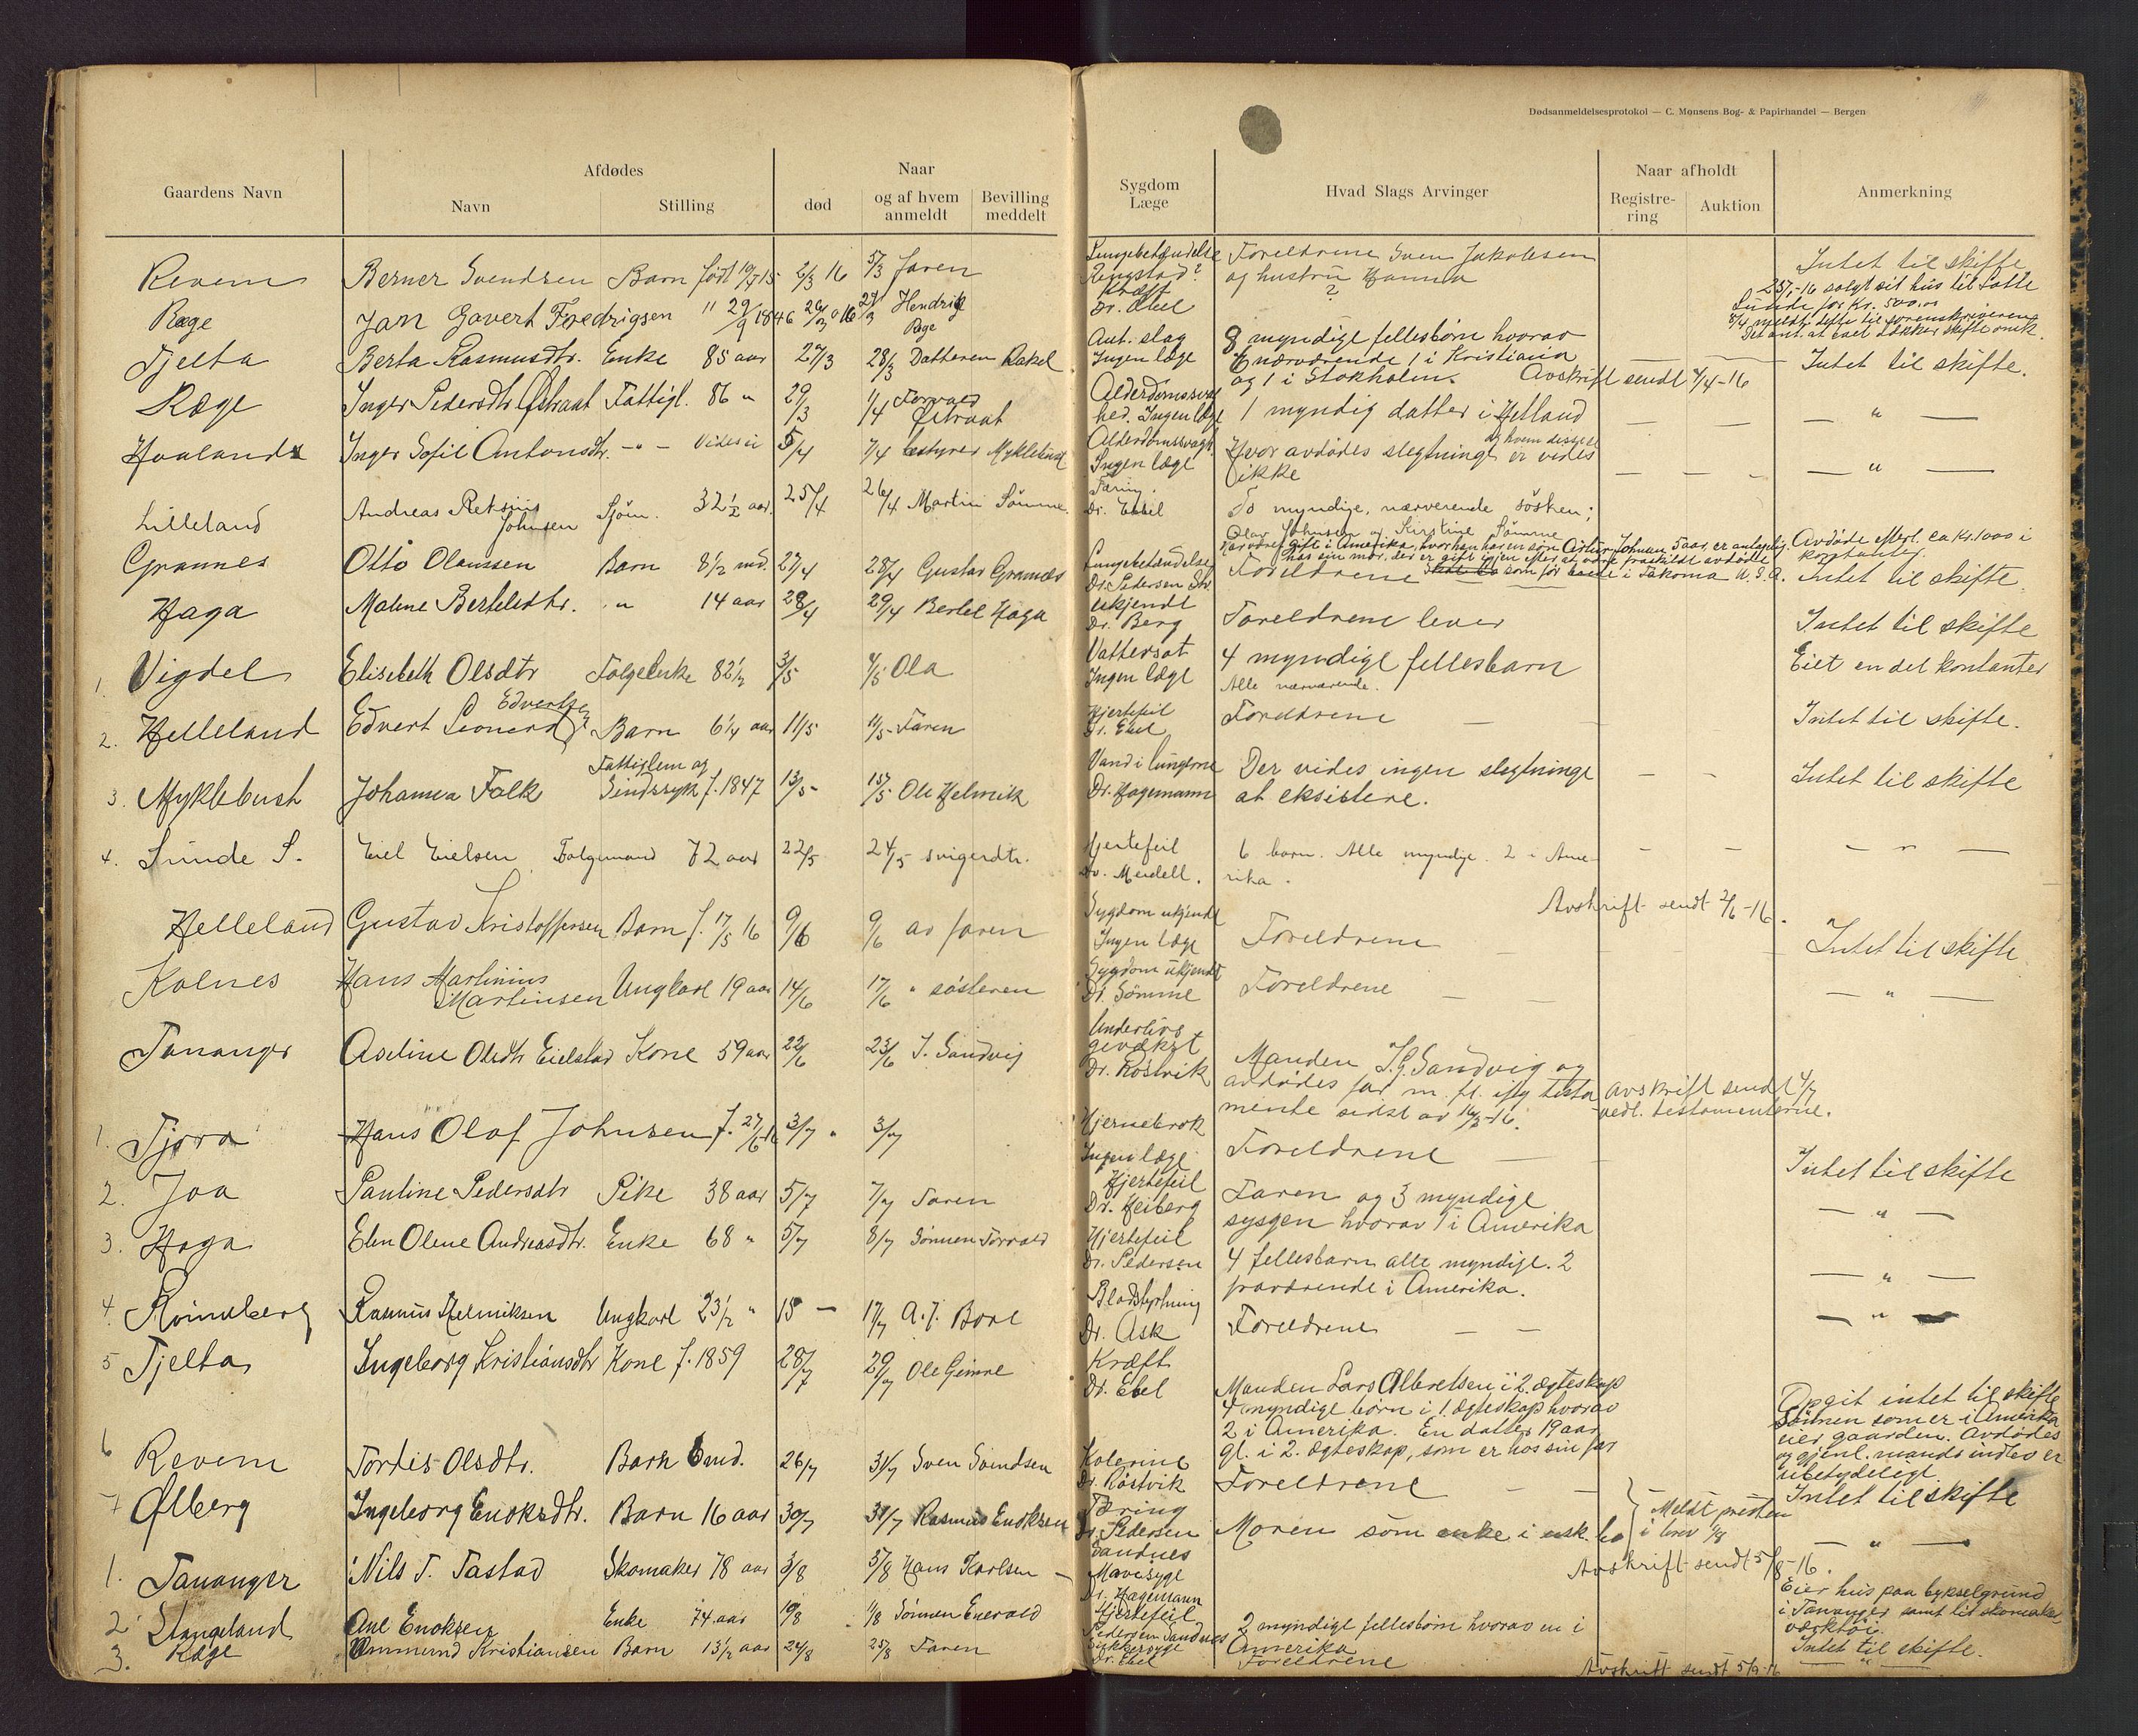 Dødsanmeldelsesprotokol — C. Monsens Bog- & Papirhandel — Bergen
Gaardens Navn
Afdødes
Navn
Stilling
Naar
død
og af hvem anmeldt
Bevilling meddelt
Sygdom Læge
Hvad Slags Arvinger
Naar afholdt
Registrering
Auktion
Anmerkning
Revem Berner Svendsen Barn født 2/3 16 5/3 faren Foreldrene Sven Jakobsen Intet til skifte
og hustru Hanna
Ræge Jan Govert Fredrigsen 1846 Hendrik Ræge Kræft Dr. Ebel ?
Tjelta Berta Rasmusdtr. Enke 85 aar 27/3 28/3 Datteren Rakel Ant. slag Ingen læge 8 myndige fellesbørn hvorav
6 nærværende 1 i Kristiania Intet til skifte.
og 1 i Stokholm. Avskrift sendt 4/4-16
Ræge Inger Pedersdtr Østraat Fattigl. 86 " 29/3 1/4 Østraat Ingen læge 1 myndig datter i Hetland — " —
Inger Sofie Antonsdtr. —"— Vides ei 5/4 7/4 bestyrer Myklebust Alderdomssvagh. Ingen læge Hvor avdødes slegtninge og hvem disse er vides
ikke — " —
Lilleland Andreas Johnsen Sjøm. 32 1/2 aar. 25/4 26/4 Martin Sømme. Tæring. Dr. Ebel To myndige, nærverende søsken;
Olav Johnsen og Kirstine Sømme
Grannes Otto Olaussen Barn 8 1/2 md. 27/4 28/4 Gustav Grannes Lungebetændelse Dr. Pedersen Foreldrene Intet til skifte.
Haga Malene Bertelsdtr. " 14 aar 28/4 29/4 Bertel Haga ukjendt Dr. Berg Foreldrene lever Intet til skifte
1. Vigdel Elisebeth Olsdtr Følgeenke 82 1/2 3/5 4/5 Ola Vattersot Ingen læge 4 myndige fellesbarn Eiet en del kontanter
Alle nærværende.
2. Helleland Edvert Leonard Edvertsen Barn 6 1/4 aar 11/5 11/5 Faren Hjertefeil Dr. Ebel Foreldrene — Intet til skifte.
3. Myklebust Johanna Falk Fattiglem og Sindssyk f. 1847 13/5 15/5 Ole Helmik Vand i lungerne Dr. Hagemann Der vides ingen slegtninge
at eksistere. — — Intet til skifte
4. Sunde S. Eiel Eielsen Følgemand 72 aar 22/5 24/5 svigerdtr. Hjertefeil Dr. Meidell. 6 barn. Alle myndige. 2 i Ame-
rika. — — — " —
Avskrift sendt 2/6-16.
Helleland Gustav Kristoffersen Barn f. 17/5 16 9/6 9/6 av faren Sygdom ukjendt Ingen læge Foreldrene Intet til skifte
Kolnes Hans Martinius Martinsen Ungkarl 19 aar 14/6 17/6 " søsteren Sygdom ukjendt Dr. Sømme Foreldrene — — — " —
Tananger Aseline Olsdtr Eielstad Kone 59 aar 22/6 23/6 J. Sandvig Underlivs gevækst Dr. Rostvik Manden J. G. Sandvig og
avdødes far m. fl. iflg testa Avskrift sendt 4/7
mente sidst av 16/3-16. vedl. testamenterne.
1. Tjora Hans Olaf Johnsen f. 27/6-16 3/7 3/7 Hjernebrok Ingen læge Foreldrene — Intet til skifte
2. Joa Pauline Pedersdtr Pike 38 aar 5/7 7/7 Faren Hjertefeil Dr. Heiberg Faren og 3 myndige
sysgen hvorav 1 i Amerika — " —
3. Haga Elen Olene Andreasdtr. Enke 68 " 5/7 8/7 Sønnen Torvald Hjertefeil Dr. Pedersen 4 fellesbarn alle myndige. 2
fraværende i Amerika. — " —
4. Rasmus Helmiksen Ungkarl 23 1/2 " 15 — 17/7 A. J. Bore Blodstyrtning Dr. Ask Foreldrene — — — " —
5 Tjelta Ingeborg Kristiansdtr Kone f. 1859 28/7 29/7 Ole Gimre Kræft Dr. Ebel Manden Lars Albretsen i 2. ægteskap
4 myndige børn i 1. ægteskap hvorav Opgit intet til skifte
2 i Amerika. En datter 19 aar Sønnen som er i Amerika
gl. i 2. ægteskap, som er hos sin far eier gaarden. Avdødes
og gjenl. mands indbo er
ubetydeligt.
6 Revem Tordis Olsdtr. Barn 6 md. 26/7 31/7 Sven Svendsen Kolerine Dr. Rostvik Foreldrene — — Intet til skifte
7 Ølberg Ingeborg Enoksdtr. Barn 16 aar 30/7 31/7 Rasmus Enoksen Tæring Dr. Pedersen Sandnes Moren som enke i usk. bo Meldt presten i brev — " —
Avskrift sendt 5/8-16.
1. Tananger Nils T. Tastad Skomaker 78 aar 3/8 5/8 Hans Karlsen — Mavesyge Dr. Hagemann Eier hus paa bykselgrund
i Tananger samt litt skomaker
værktøi.
2 Stangeland Ane Enoksen Enke 74 aar 10/8 11/8 Sønnen Enevald Hjertefeil Pedersen Sandnes 2 myndige fellesbørn hvorav en i
Amerika Intet til skifte.
3. Ræge Ommund Kristiansen Barn 13 1/2 aar 24/8 25/8 Faren Sukkersyge Dr. Ebel Foreldrene — " —
Avskrift sendt 5/9-16